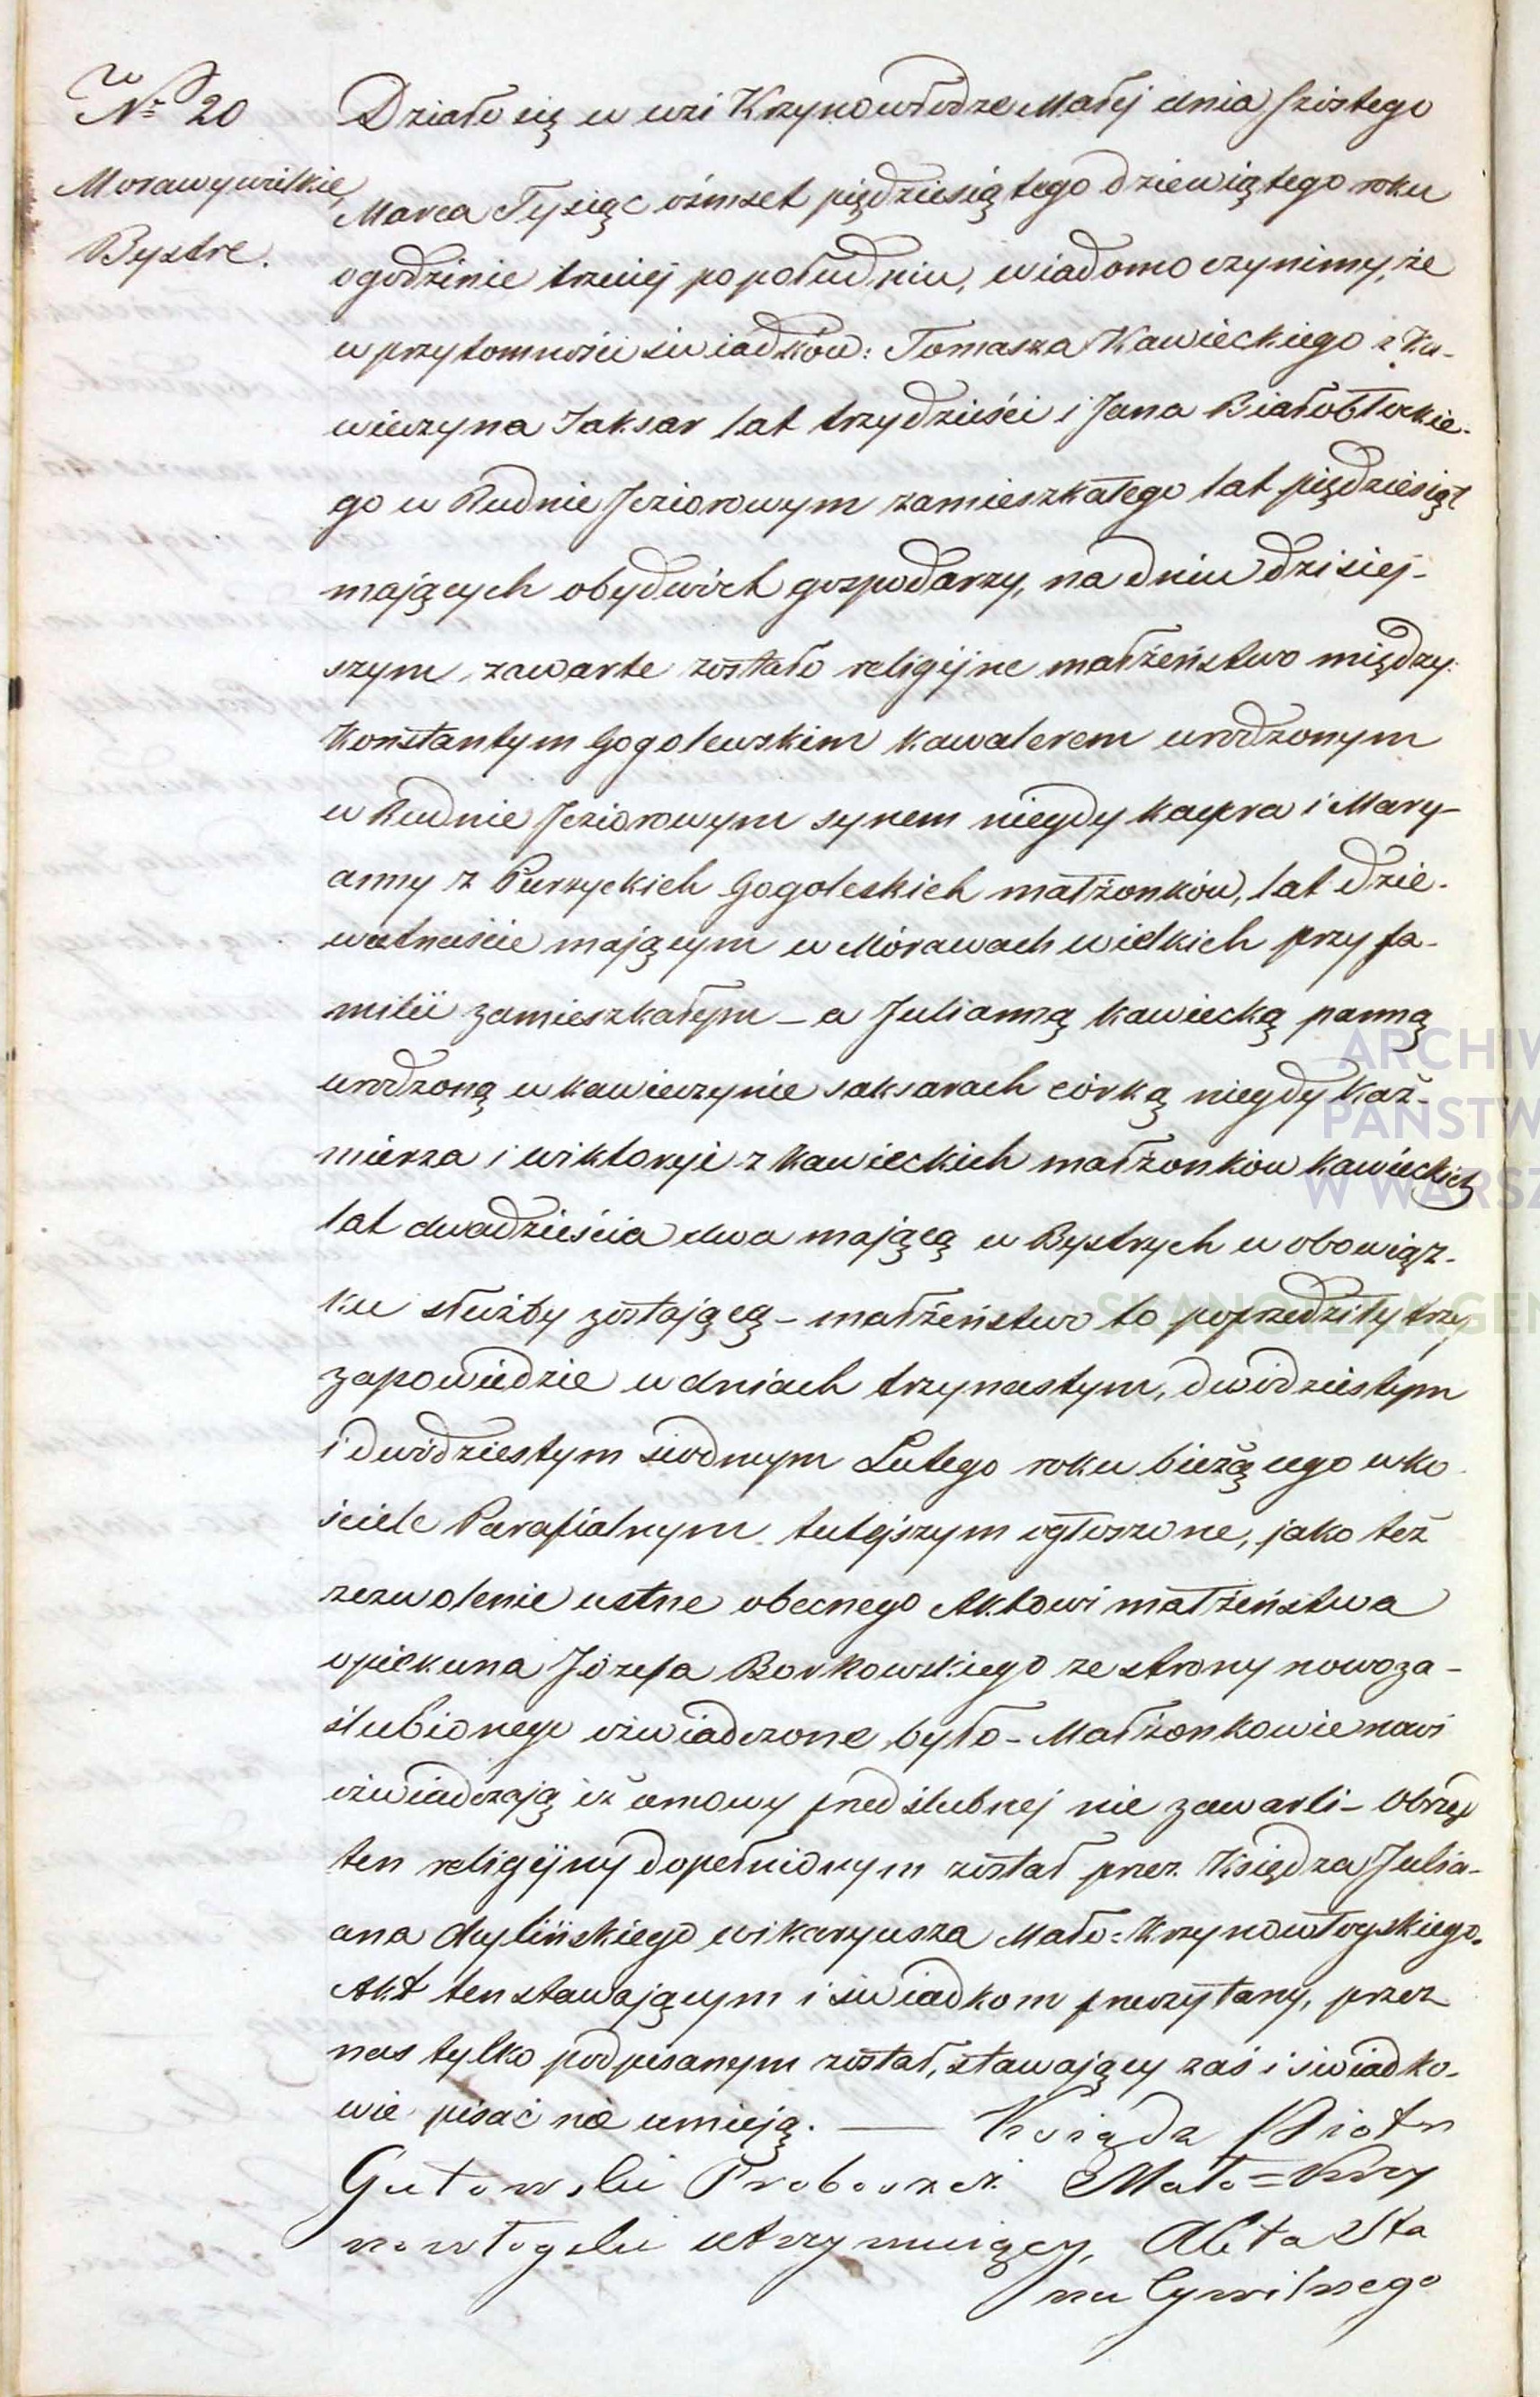 No 20
Morawy wielkie
Bystre.
Działo się w wsi Krzynowłodze Małej dnia szóstego
Marca Tysiąc ośmset pięćdziesiątego dziewiątego roku
o godzinie trzeciej po południu, wiadomo czynimy, że
w przytomności świadków: Tomasza Kawieckiego z Ka-
wieczyna Saksar lat trzydzieści i Jana Białobłockie-
go w Rudnie Jeziorowym zamieszkałego lat pięćdziesiąt
mających obydwóch gospodarzy, na dniu dzisiej-
szym zawarte zostało religijne małżeństwo między:
Konstantym Gogolewskim kawalerem urodzonym
w Rudnie Jeziorowym synem niegdy Kacpra i Mary-
anny z Purzyckich Gogoleskich małżonków, lat dzie-
wietnaście mającym w Morawach wielkich przy fa-
milii zamieszkałym – a Julianną Kawiecką panną
urodzoną w Kawieczynie saksarach córką niegdy Kaź-
mierza i wiktoryi z Kawieckich małżonków Kawieckich
lat dwadzieścia dwa mającą w Bystrych w obowiąz-
ku służby zostającą – małżeństwo to poprzedziły trzy
zapowiedzie w dniach trzynastym, dwódziestym
i dwódziestym siodmym Lutego roku bieżącego w ko
ściele Parafialnym tutejszym ogłoszone, jako też
zezwolenie ustne obecnego Aktowi małżeństwa
opiekuna Józefa Borkowskiego ze strony nowoza-
ślubionego oświadczone było – Małżonkowie nowi
oświadczają iż umowy przedślubnej nie zawarli – Obrzęd
ten religijny dopełnionym został przez Księdza Julia-
ana wikaryusza Mało=Krzynowłoskiego.
Akt ten stawającym i świadkom przeczytany, przez
nas tylko podpisanym został, stawający zaś i świadko-
wie pisać nie umieją. — Ksiądz Piotr
Gutowski Proboszcz Mało=Krzy
nowłogski utrzymuiący Akta Sta
nu Cywilnego
ARCHIW
PAŃSTW
W WARSZ
SKANOTEKA.GEN